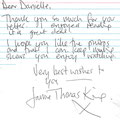 Dear Danielle,
Thank you so much for your
letter. I enjoyed reading it
a great deal!
I hope you like the photos
and that I can keep making
shows you enjoy watching.
Very best wishes to
you
Thomas
X